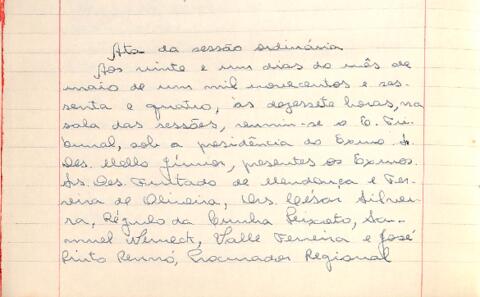 Ata da sessão ordinária
Aos vinte e um dias do mês de
maio de um mil novecentos e ses-
senta e quatro, às dezessete horas, na
sala das sessões, reuniu-se o E. Tri-
bunal, sob a presidência do Exmo. S.
Des. Mello Júnior, presentes os Exmos.
Srs. Des. Furtado de Mendonça e Fer-
reira de Oliveira, Drs. César Silvei-
ra, Régulo da Cunha Peixoto, Sa-
muel Werneck, Valle Ferreira e José
Pinto Rennó, Procurador Regional